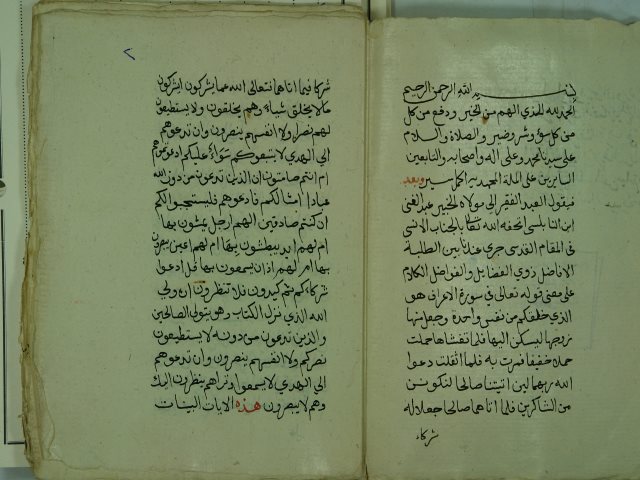 بسم الله الرحمن الرحيم
الحمد لله الذي الهم من الخير ودفع من كل
من كل سوء وشر وضير والصلاة والسلام
على سيدنا محمد وعلى اله واصحابه والتابعين
السايرين على الملة المحمدية اكمل سير وبعد
فيقول العبد الفقير الى مولاه الخبير عبد الغني
ابن النابلسي اتحفه الله تعالى بالجناب الانسي
في المقام القدسي جرى عندنا بين الطلبة
الافاضل ذوي الفضايل والفواضل الكلام
على معنى قوله تعالى في سورة الاعراف هو
الذي خلقكم من نفس واحدة وجعل منها
زوجها ليسكن اليها فلما تغشاها حملت
حملا خفيفا فمرت به فلما اثقلت دعوا
الله ربهما لين اتيتنا صالحا لنكونن
من الشاكرين فلما اتاهما صالحا جعلا له
شركاء
٢
شركا فيما اتاهما فتعالى الله عما يشركون ايشركون
ما لا يخلق شياء وهم يخلقون ولا يستطيعون
لهم نصرا ولا انفسهم ينصرون وان تدعوهم
الى الهدي لا يتبعوكم سواء عليكم ادعوتموهم
ام انتم صامتون ان الذين تدعون من دون الله
عبادا امثالكم فادعوهم فليستجيبوا لكم
ان كنتم صادقين الهم ارجل يمشون بها
ام لهم ايد يبطشون بها ام لهم اعين يبصرون
بها ام لهم اذان يسمعون بها قل ادعوا
شركاءكم ثم كيدون فلا تنظرون ان ولي
الله الذي نزل الكتاب وهو يتولى الصالحين
والذين تدعون من دونه لا يستطيعون
نصركم ولا انفسهم ينصرون وان تدعوهم
الى الهدي لا يسمعوا وتراهم ينظرون اليك
وهم لا يبصرون هذه الايات البينات